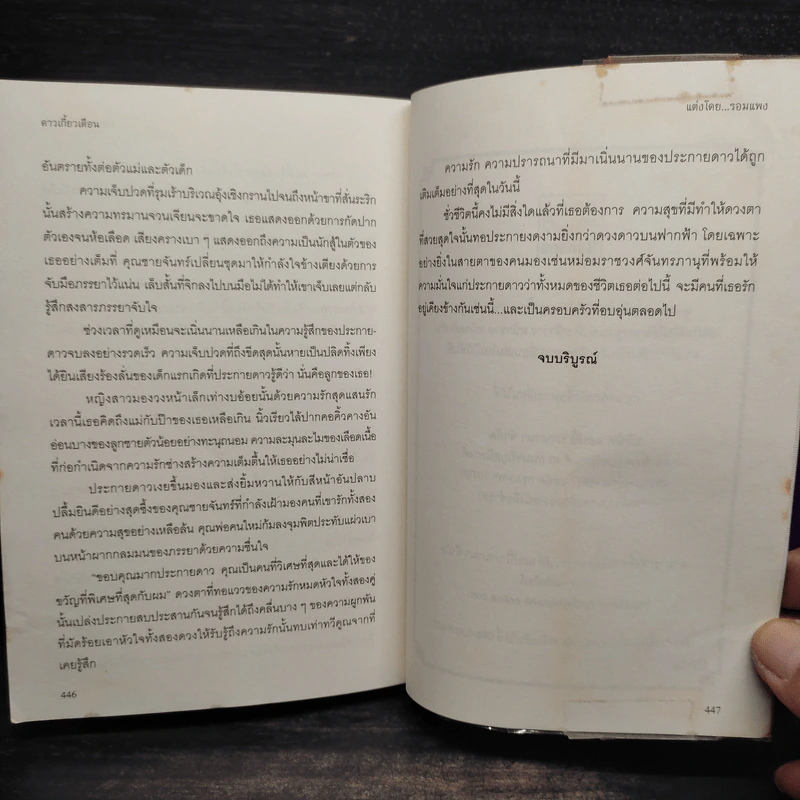 ดาวเกี้ยวเดือน
อันตรายทั้งต่อตัวแม่และตัวเด็ก
ความเจ็บปวดที่รุมเร้าบริเวณอุ้งเชิงกรานไปจนถึงหน้าขาที่สั่นระริก
นั้นสร้างความทรมานจวนเจียนจะขาดใจ เธอแสดงออกด้วยการกัดปาก
ตัวเองจนห้อเลือด เสียงครางเบา ๆ แสดงออกถึงความเป็นนักสู้ในตัวของ
เธออย่างเต็มที่ คุณชายจันทร์เปลี่ยนชุดมาให้กำลังใจข้างเตียงด้วยการ
จับมือภรรยาไว้แน่น เล็บสั้นที่จิกลงไปบนมือไม่ได้ทำให้เขาเจ็บเลยแต่กลับ
รู้สึกสงสารภรรยาจับใจ
ช่วงเวลาที่ดูเหมือนจะเนิ่นนานเหลือเกินในความรู้สึกของประกาย-
ดาวจบลงอย่างรวดเร็ว ความเจ็บปวดที่ถึงขีดสุดนั้นหายเป็นปลิดทิ้งเพียง
ได้ยินเสียงร้องลั่นของเด็กแรกเกิดที่ประกายดาวรู้ดีว่า นั่นคือลูกของเธอ!
หญิงสาวมองวงหน้าเล็กเท่างบอ้อยนั้นด้วยความรักสุดแสนรัก
เวลานี้เธอคิดถึงแม่กับป๊าของเธอเหลือเกิน นิ้วเรียวไล้ปากคอคิ้วคางอัน
อ่อนบางของลูกชายตัวน้อยอย่างทะนุถนอม ความละมุนละไมของเลือดเนื้อ
ที่ก่อกำเนิดจากความรักช่างสร้างความเต็มตื้นให้เธออย่างไม่น่าเชื่อ
ประกายดาวเงยขึ้นมองและส่งยิ้มหวานให้กับสีหน้าอันปลาบ
ปลื้มยินดีอย่างสุดซึ้งของคุณชายจันทร์ที่กำลังเฝ้ามองคนที่เขารักทั้งสอง
คนด้วยความสุขอย่างเหลือล้น คุณพ่อคนใหม่ก้มลงจุมพิตประทับแผ่วเบา
บนหน้าผากกลมมนของภรรยาด้วยความชื่นใจ
“ขอบคุณมากประกายดาว คุณเป็นคนที่วิเศษที่สุดและได้ให้ของ
ขวัญที่พิเศษที่สุดกับผม” ดวงตาที่ทอแววของความรักหมดหัวใจทั้งสองคู่
นั้นเปล่งประกายสบประสานกันจนรู้สึกได้ถึงคลื่นบาง ๆ ของความผูกพัน
ที่มัดร้อยเอาหัวใจทั้งสองดวงให้รับรู้ถึงความรักนั้นทบเท่าทวีคูณจากที่
เคยรู้สึก
446
แต่งโดย...รอมแพง
ความรัก ความปรารถนาที่มีมาเนิ่นนานของประกายดาวได้ถูก
เติมเต็มอย่างที่สุดในวันนี้
ชั่วชีวิตนี้คงไม่มีสิ่งใดแล้วที่เธอต้องการ ความสุขที่มีทำให้ดวงตา
ที่สวยสุดใจนั้นทอประกายงดงามยิ่งกว่าดวงดาวบนฟากฟ้า โดยเฉพาะ
อย่างยิ่งในสายตาของคนมองเช่นหม่อมราชวงศ์จันทรภานุที่พร้อมให้
ความมั่นใจแก่ประกายดาวว่าทั้งหมดของชีวิตเธอต่อไปนี้ จะมีคนที่เธอรัก
อยู่เคียงข้างกันเช่นนี้...และเป็นครอบครัวที่อบอุ่นตลอดไป
จบบริบูรณ์
447